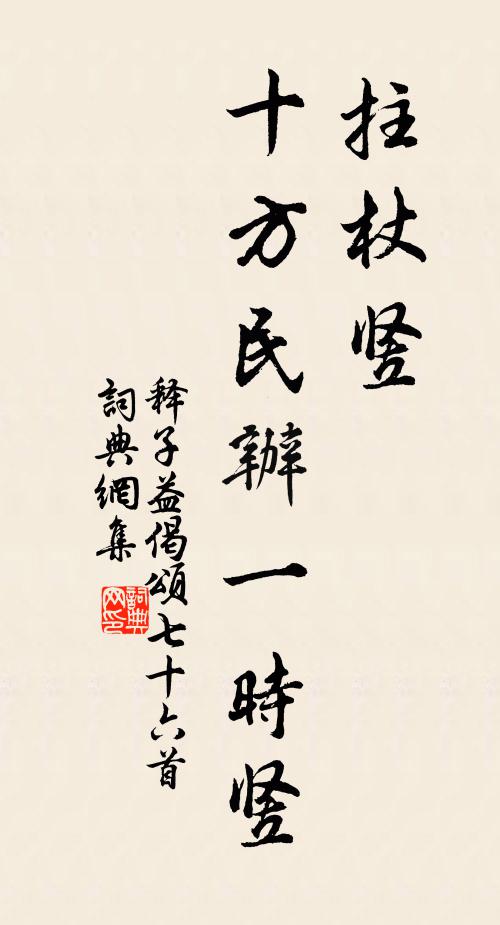 拄杖竖
十方民辦一時竖
释子益偈頌七十六首
詞典網集
詞典网印